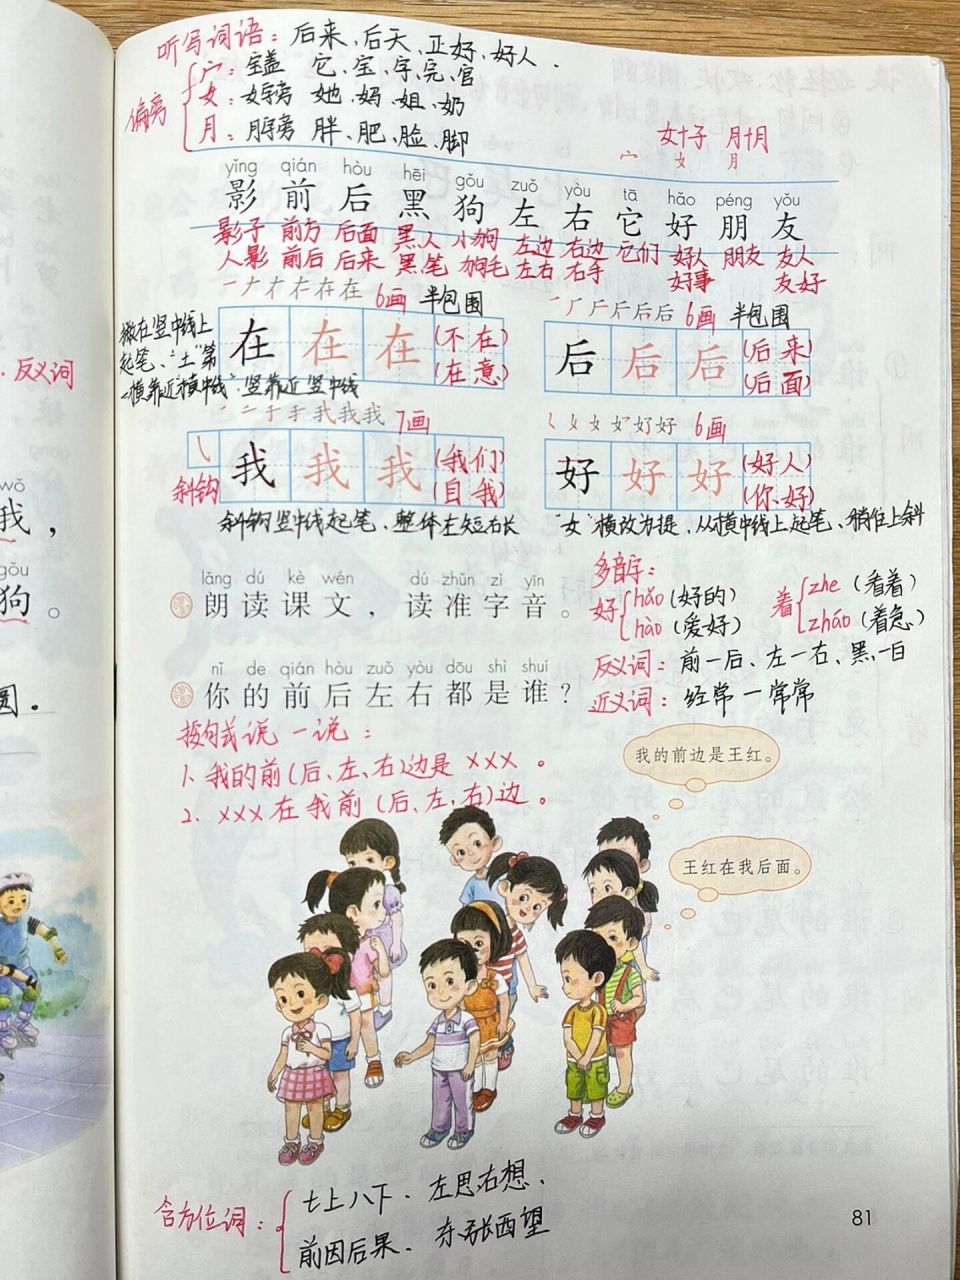 听写词语：后来、后天、正好、好人．
偏旁
宀：宝盖 它、宝、字、完、官
女：女字旁 她、妈、姐、奶
月：月字旁 胖、肥、脸、脚
女+子 月+月
宀 女 月
yǐng qián hòu hēi gǒu zuǒ yòu tā hǎo péng yǒu
影 前 后 黑 狗 左 右 它 好 朋 友
影子 前方 后面 黑人 小狗 左边 右边 它们 好人 朋友 友人
人影 前后 后来 黑笔 狗毛 左右 右手 好事 友好
一ナオ在在在 6画 半包围
撇在竖中线上
起笔、“土”第
一横靠近“横中线”．竖靠近竖中线
在 在 在 (不在)
(在意)
一厂斤斤后后 6画 半包围
后 后 后 (后来)
(后面)
一二千手我我我 7画
斜钩
我 我 我 (我们)
(自我)
斜钩竖中线起笔、整体左短右长
ㄑ女女好好好 6画
好 好 好 (好人)
(你好)
“女”横改为提、从横中线上起笔、稍往上斜
lǎng dú kè wén dú zhǔn zì yīn
朗读课文，读准字音。
nǐ de qián hòu zuǒ yòu dōu shì shuí
你的前后左右都是谁？
多音字：
好 hǎo (好的)
hào (爱好)
着 zhe (看着)
zháo (着急)
反义词：前一后、左一右、黑一白
近义词：经常一常常
按句式说一说：
1、我的前(后、左、右)边是×××。
2、×××在我前(后、左、右)边。
我的前边是王红。
王红在我后面。
含方位词：
七上八下． 左思右想、
前因后果． 东张西望
81
．反义词
wǒ
我，
gǒu
狗。
圆．